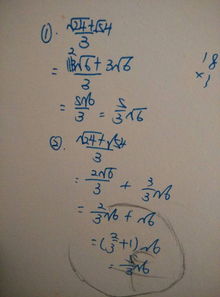 ①. (√24+√54)/3
= (2√6+3√6)/3
= 5√6/3 = 5/3 √6
②. (√24+√54)/3
= 2√6/3 + 3/3 √6
= 2/3 √6 + √6
= (2/3+1)√6
= 5/3 √6